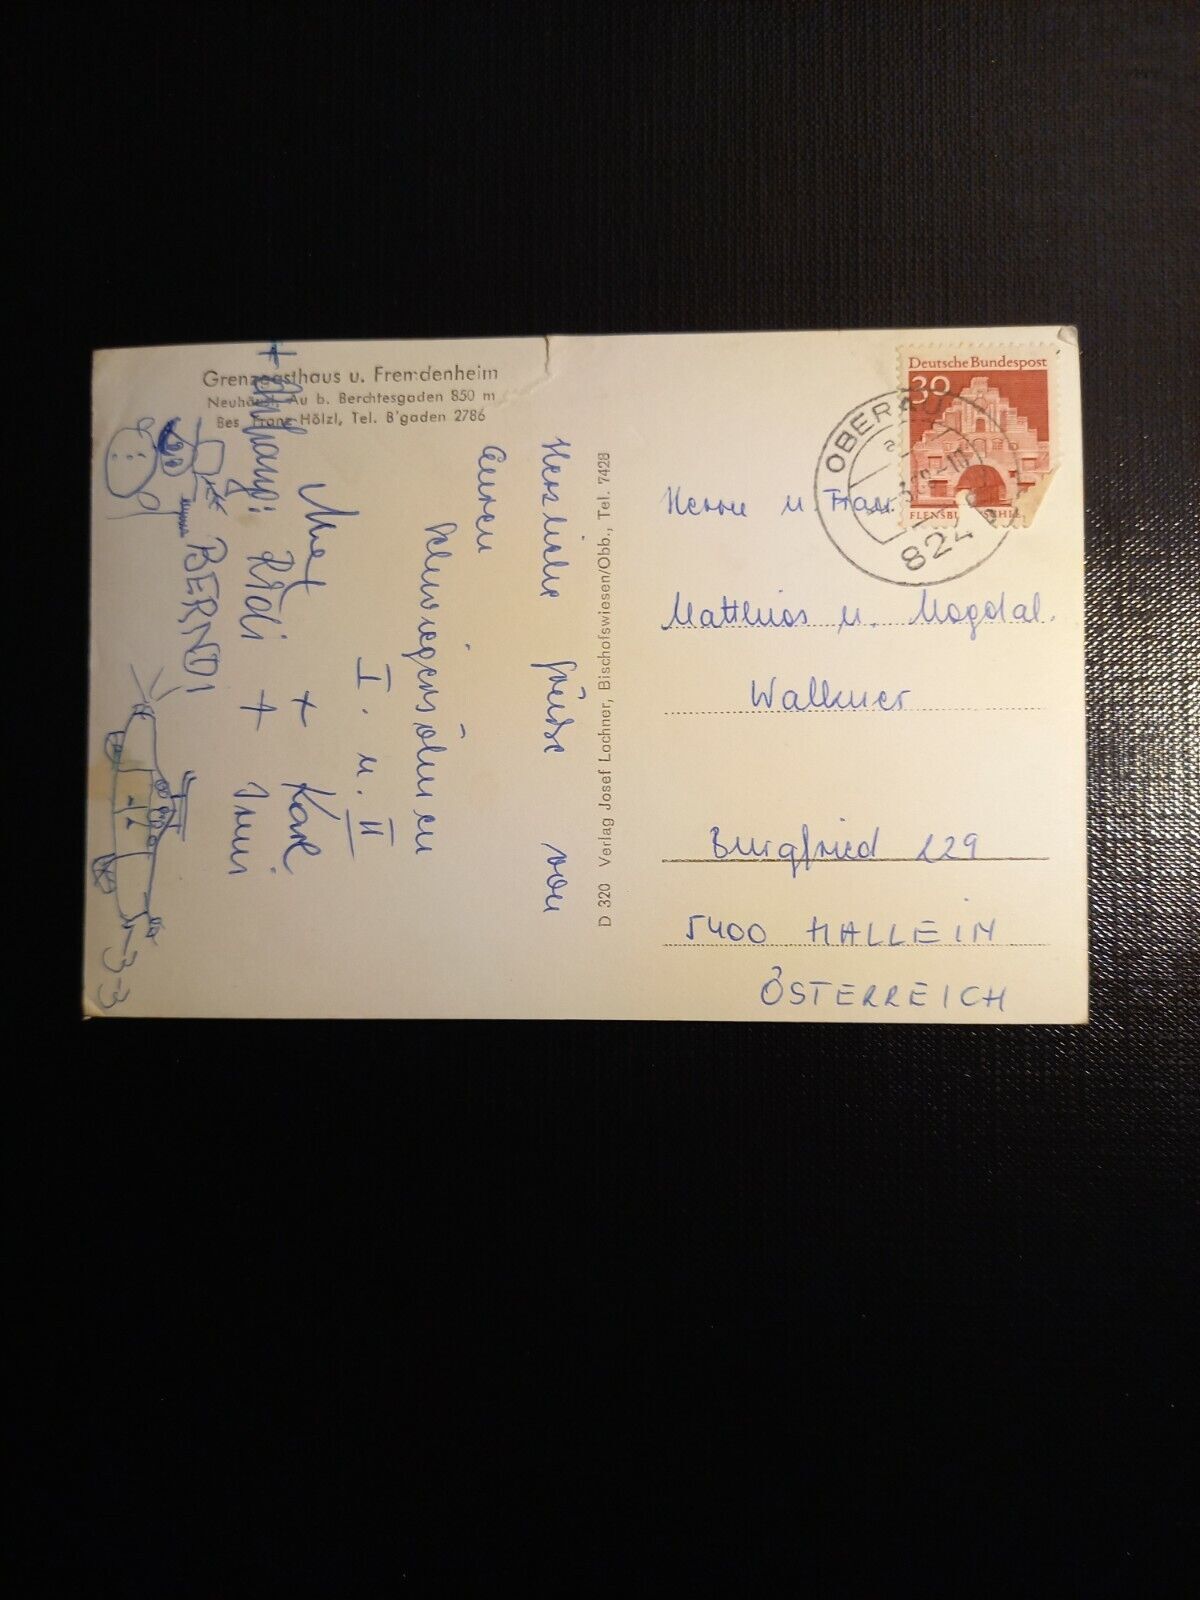 Grenzgasthaus u. Fremdenheim
Neuhäusl, Au b. Berchtesgaden 850 m
Bes. Franz Hölzl, Tel. B'gaden 2786
Herzliche Grüße von
Euren
Schwiegersöhnen
I. u. II
+ Karl
+ Anhang: Rudi + Inni
BERNDI
D 320 Verlag Josef Lochner, Bischofswiesen/Obb., Tel. 7428
Deutsche Bundespost
30
FLENSBURG
OBERAU
824
Herrn u. Frau
Matthias u. Magdal.
Walkner
Burgfried 129
5400 HALLEIN
ÖSTERREICH